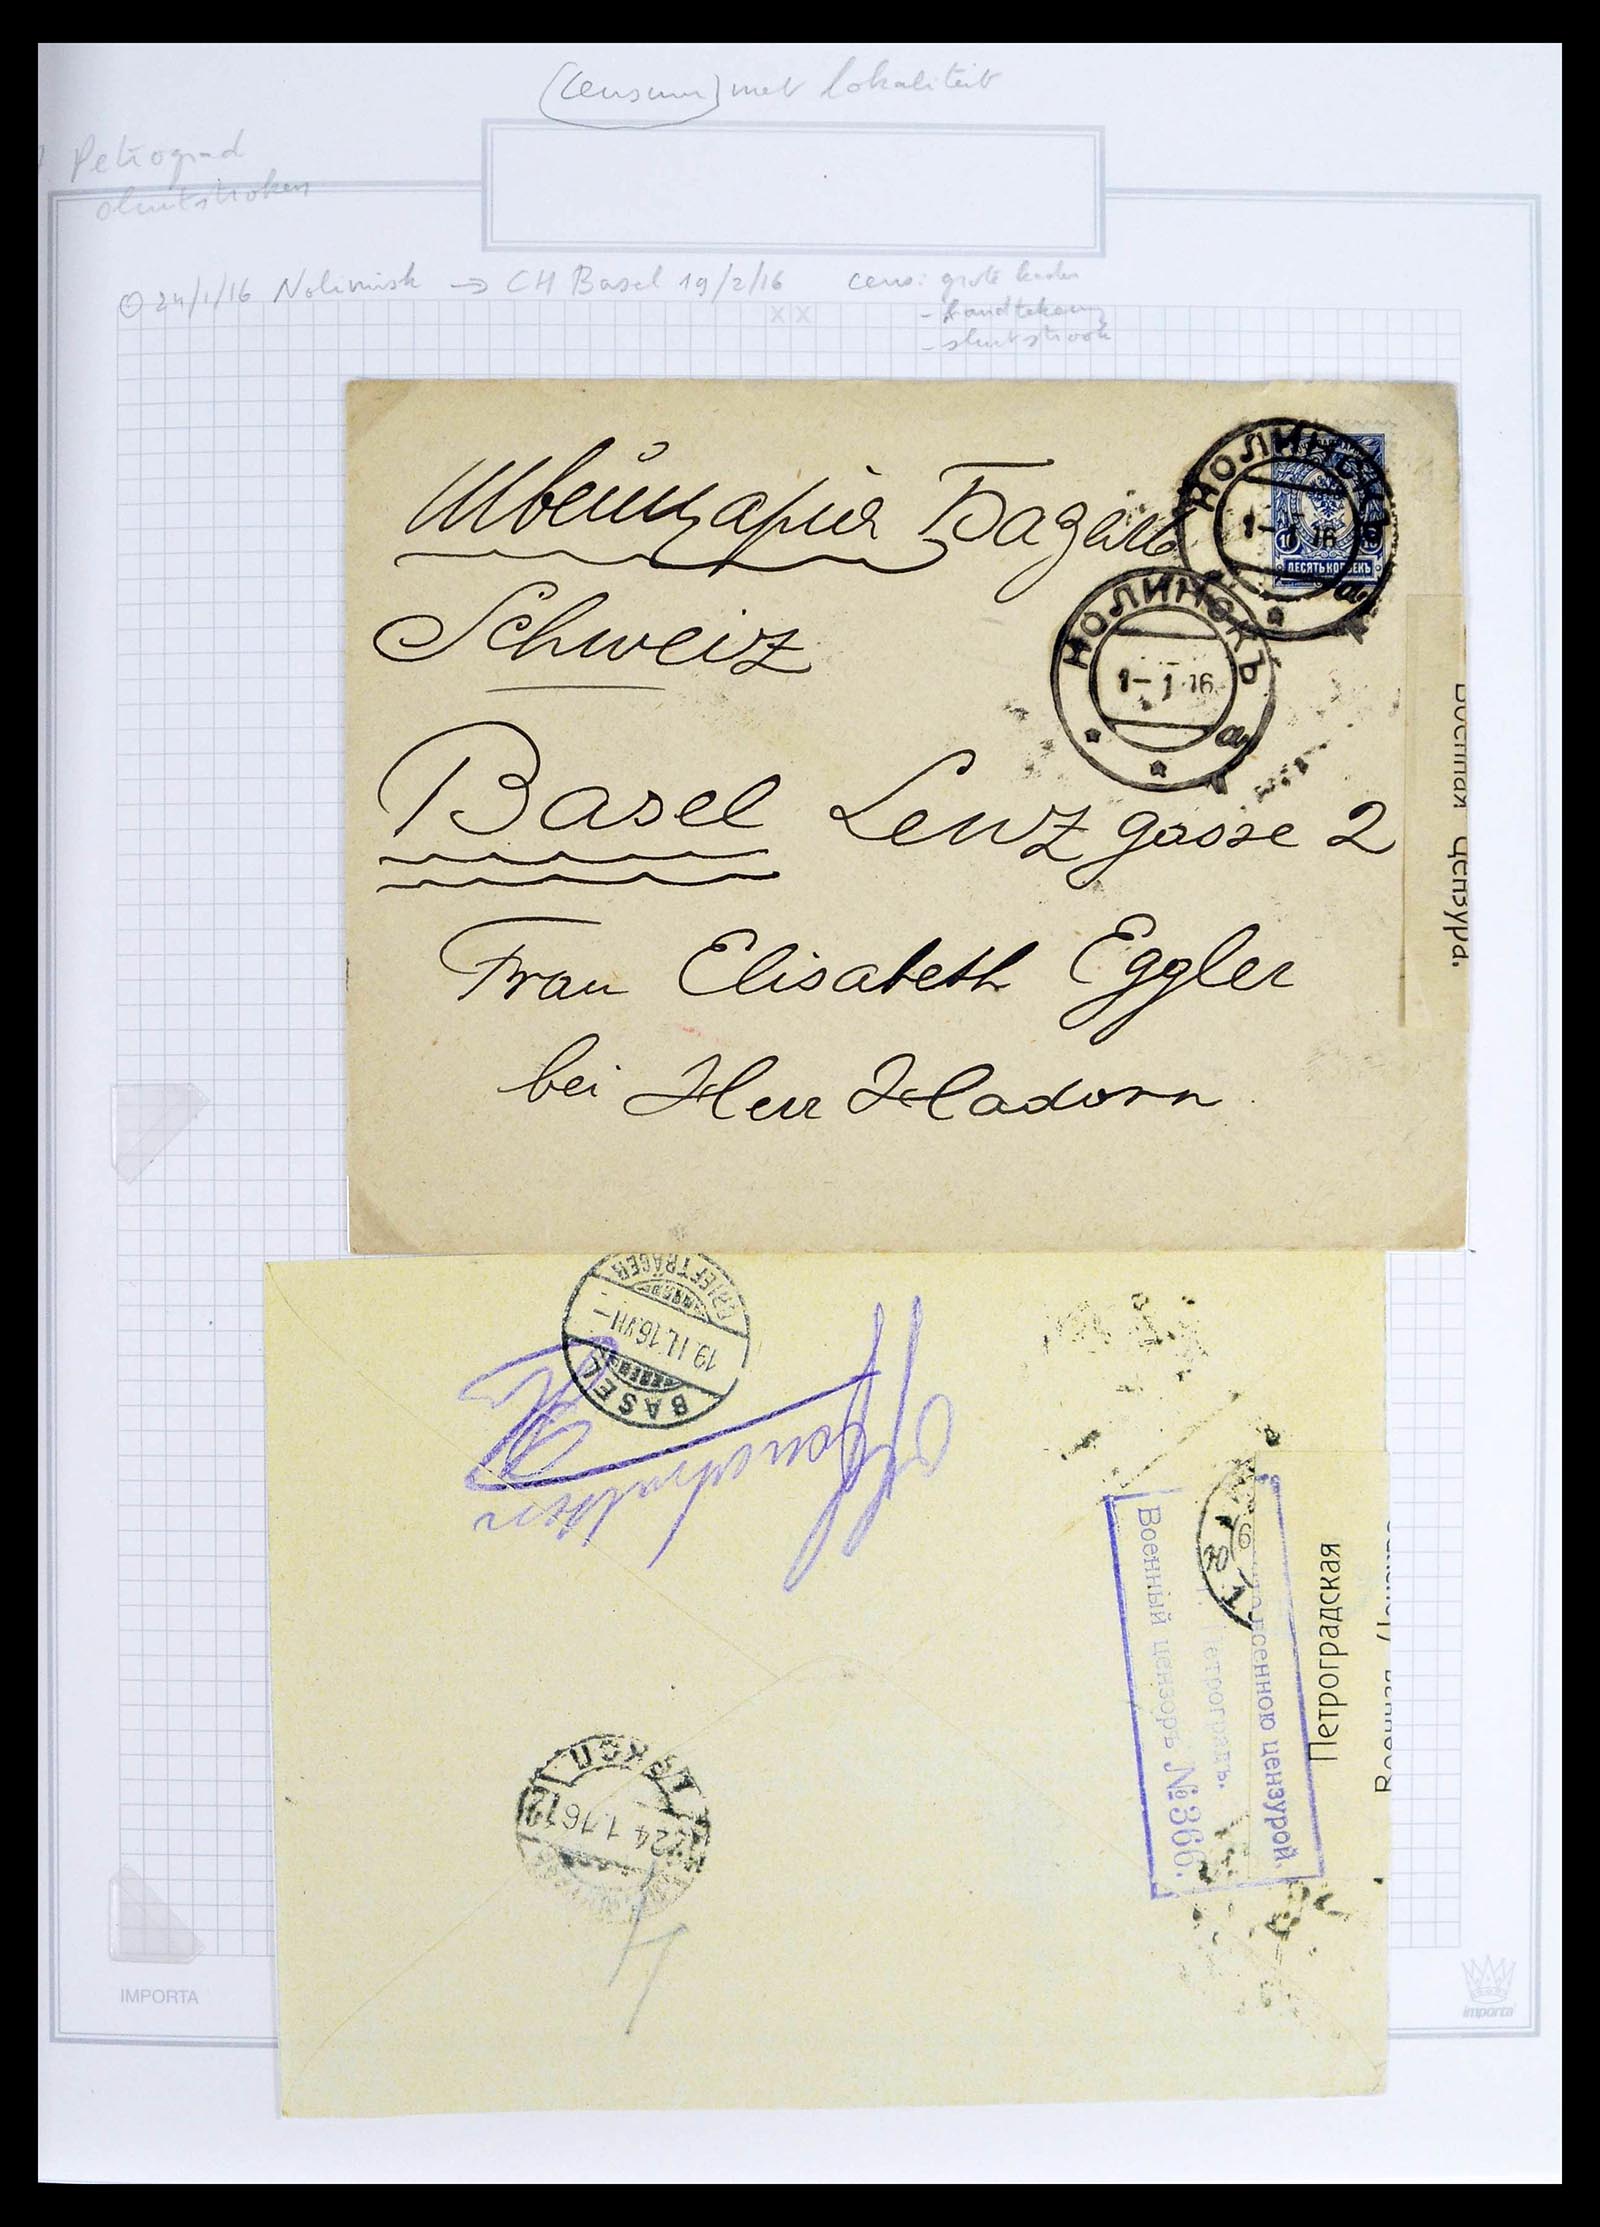 (censuur) met lokaliteit
Petrograd
sluitstroken
24/1/16 Nolinsk → CH Basel 19/2/16 cens: grote kader
- handtekening
- sluitstrook
XX
Швейцарія Базель
Schweiz
Basel Lenzgasse 2
Frau Elisabeth Eggler
bei Herr Hadorn
НОЛИНСКЪ
1-1 16
а
ДЕСЯТЬ КОПѢЕКЪ
НОЛИНСКЪ
1-1 16
а
Военная Цензура.
BRIEFTRÄGER
19.II.16.VII-
BASEL
военною цензурой.
Петроградъ.
Военный цензоръ №366.
Петроградская
Военная
24 1 16 12
IMPORTA
importa